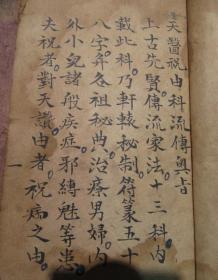 天醫祝由科流傳奧旨
上古先賢傳流家法十三科内
載此科乃軒轅秘制符篆五十
八字并各祖秘典治療男婦内
外小兒諸般疾症邪縛魁等患
夫祝者對天讖由者祝病之由
一